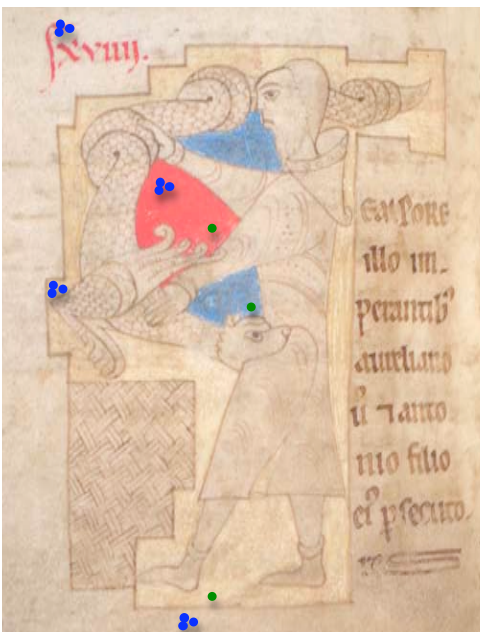 xviiij.
EMPORE
illo im-
perantib᷒
aureliano
⁊ anto
nio filio
ei᷒ psecuto.